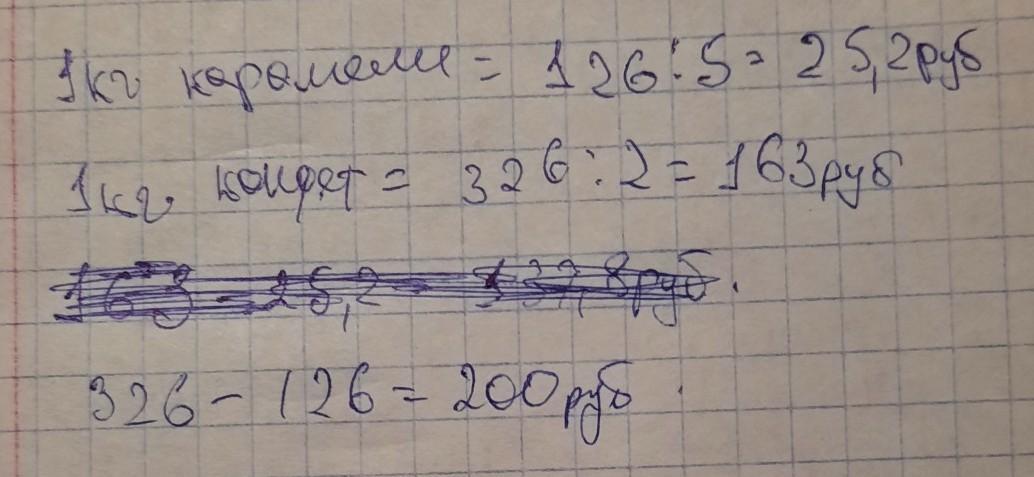 1кг карамели = 126:5= 25,2руб
1кг конфет = 326:2=163руб
163-25,2= 137,8руб.
326-126=200руб.